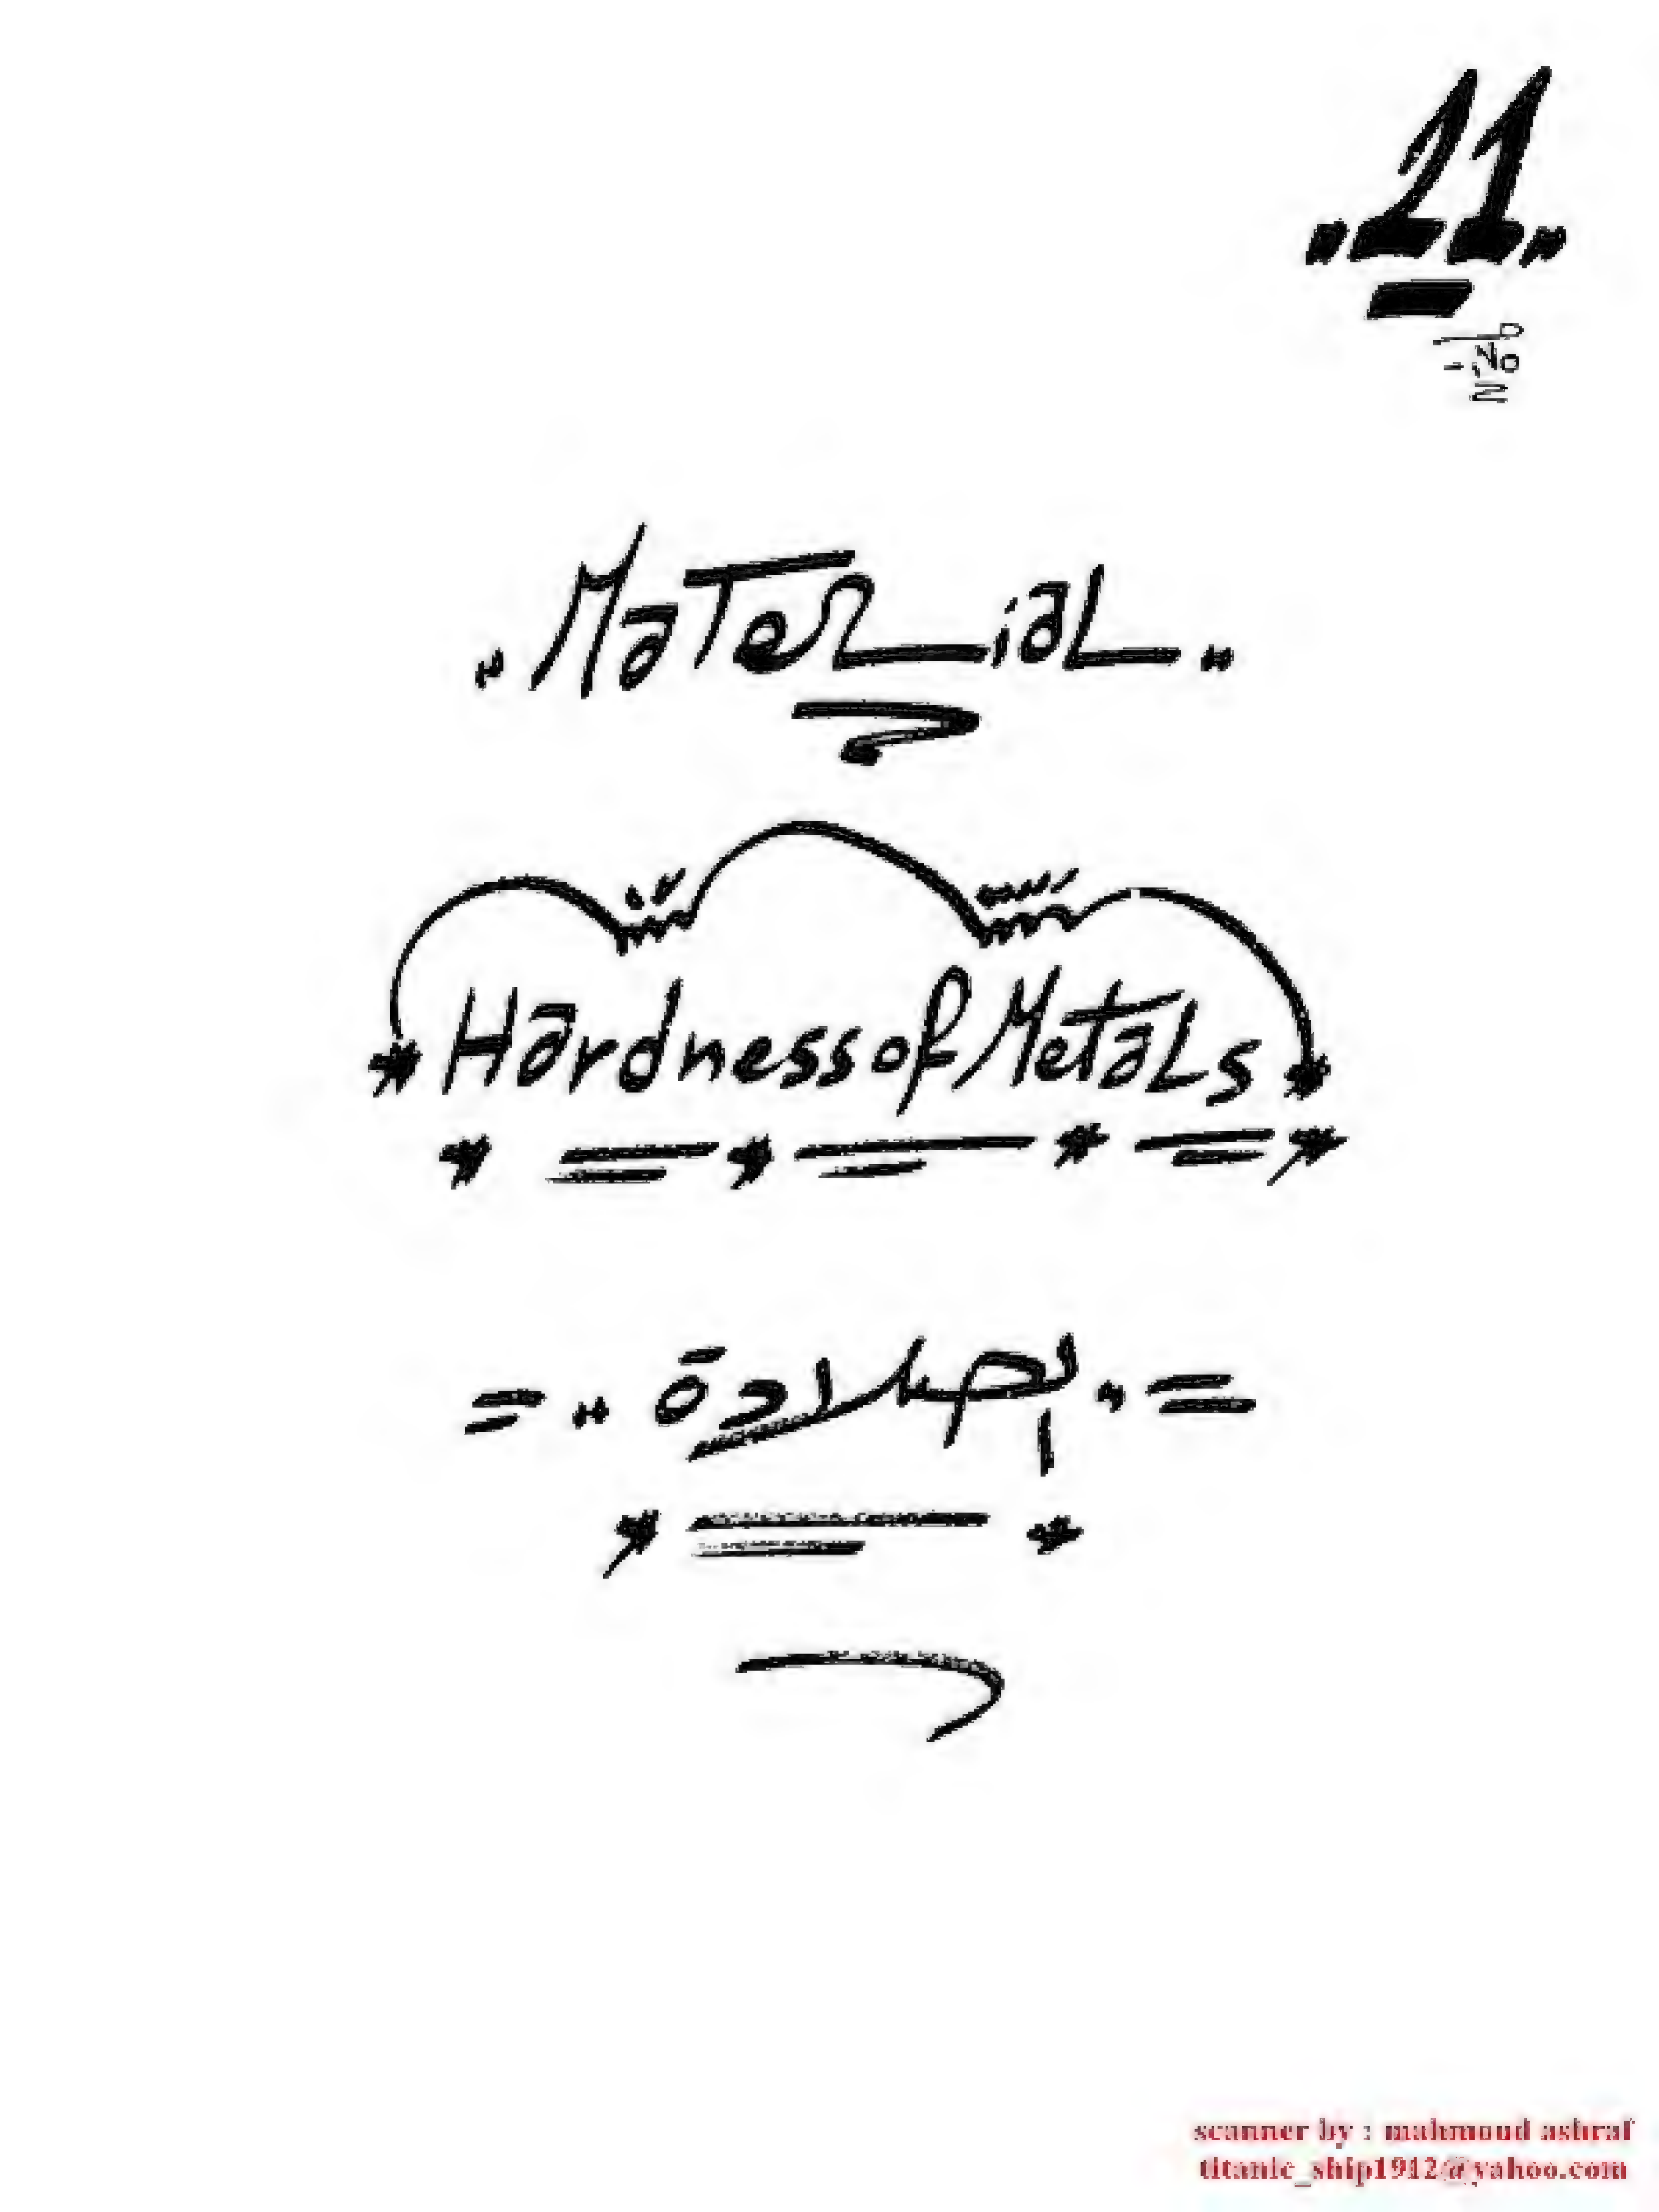 "11"
"Material"
Hardness of Metals
= "الصلادة" =
scanner by : mahmoud ashraf
titanic_ship1912@yahoo.com